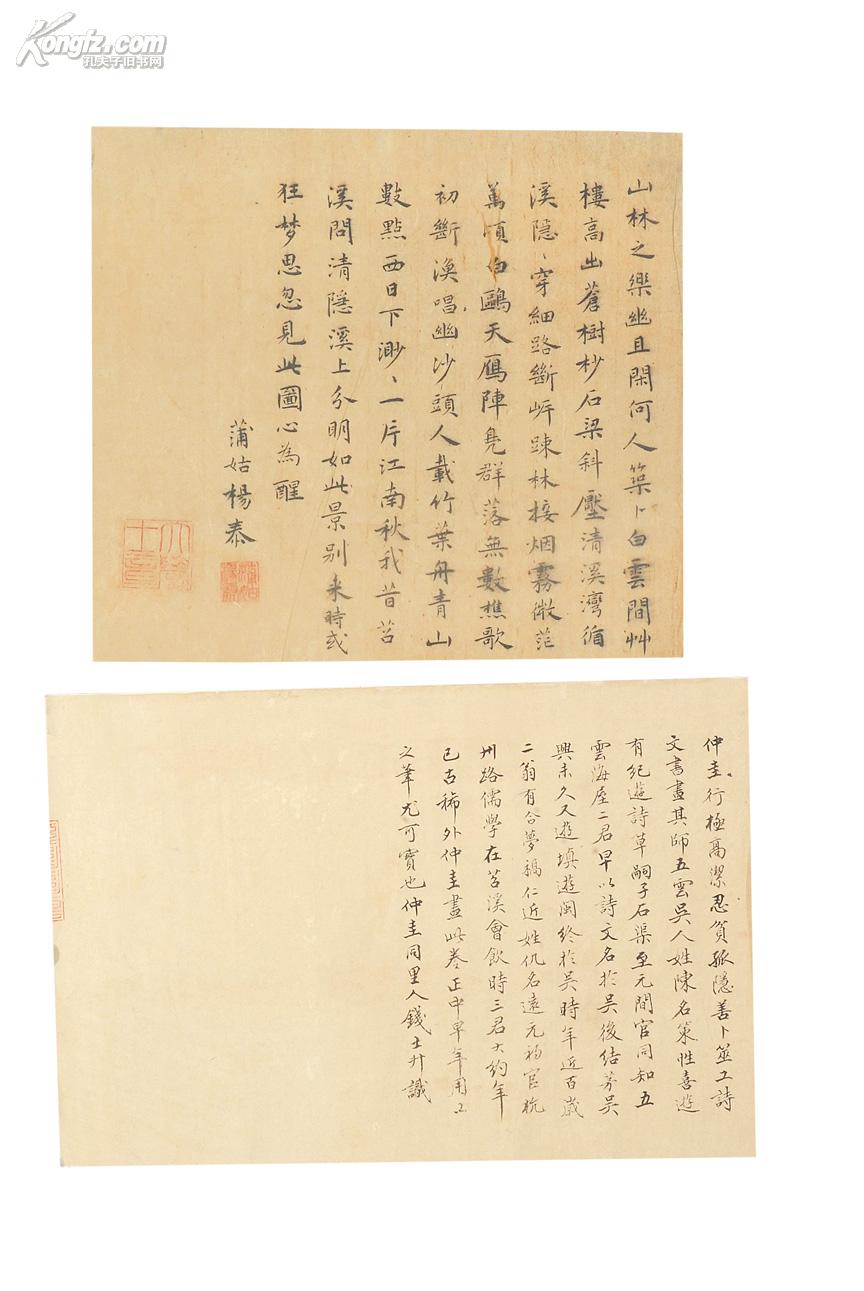 Kongfz.com
孔夫子旧书网
山林之樂幽且閑何人築卜白雲間艸
樓高出蒼樹杪石梁斜壓清溪灣循
溪隱、穿細路斷岸踈林接烟霧微茫
萬頃白鷗天鴈陣鳧群落無數樵歌
初斷漁唱幽沙頭人載竹葉舟青山
數點西日下渺、一片江南秋我昔苕
溪問清隱溪上分明如此景别来時或
狂梦思忽見此圖心為醒
蒲姑楊泰
仲圭行極高潔忍貧孤隱善卜筮工詩
文書畫其師五雲吳人姓陳名策性喜遊
有紀遊詩草嗣子石渠至元間官同知五
雲海屋二君早以詩文名於吳後結茅吳
興未久又遊滇遊閩終於吳時年近百歲
二翁有合夢稿仁近姓仇名遠元初官杭
州路儒學在苕溪會飲時三君大約年
已古稀外仲圭畫此卷正中早年用工
之筆尤可寶也仲圭同里人錢士升識